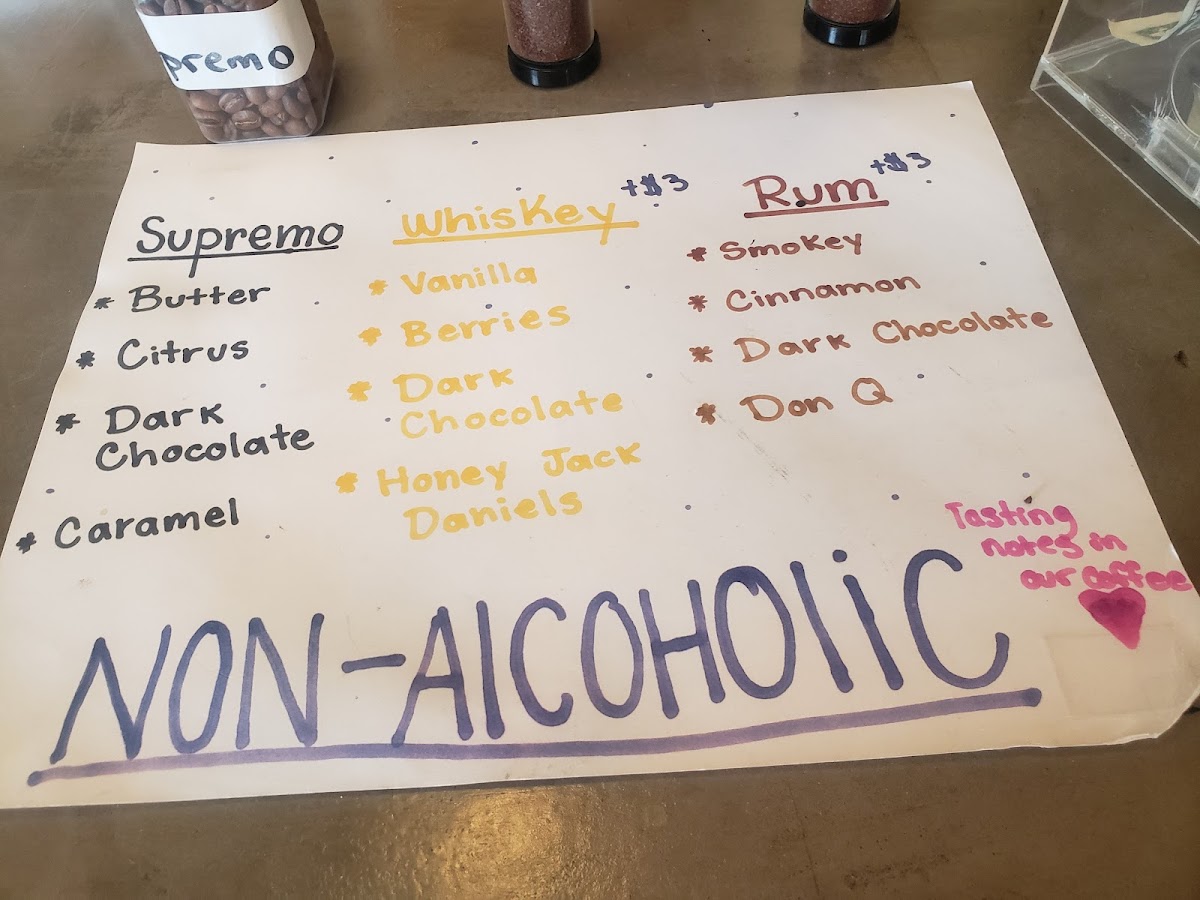 premo
Supremo
* Butter
* Citrus
* Dark
Chocolate
* Caramel
Whiskey +$3
* Vanilla
* Berries
* Dark
Chocolate
* Honey Jack
Daniels
Rum +$3
* Smokey
* Cinnamon
* Dark Chocolate
* Don Q
Tasting
notes in
our coffee
NON-AlCOHOliC